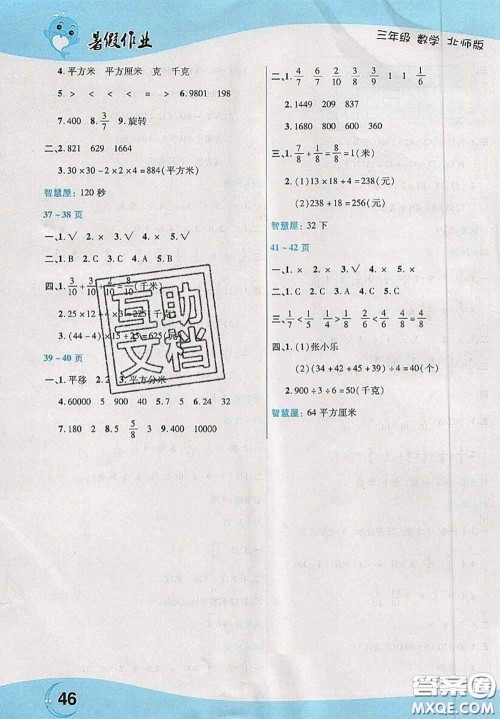 暑假作业
三年级 数学 北师版
4.平方米 平方厘米 克 千克
5.> < < < = > 6.9801 198
7.400 8.3/7 9.旋转
二、2.821 629 1664
3.30×30-2×2×4=884(平方米)
智慧屋:120 秒
37~38页
一、1.√ 2.× 3.× 4.× 5.√
二、1.B 2.C 3.C 4.B 5.C
四、1.1/10+3/10+2/10+2/10=8/10(千米)
2.25×12+ =225(千米)
3.(44-4)×15+25=625(元)
39~40页
一、1.平移 2.2 3.平方分米
4.60000 5.4 2 5 6.24 32
7.180 2 8.5/8 3 9.40 10000
二、1.4/7 6/7 6/9 3/8 1 1 1/6
2.1449 209 837
3.1680 800 640
三、1.7/8+1/8=8/8=1(米)
2.(1)13×18+4=238(元)
(2)238+18=256(元)
智慧屋:32 下
41~42页
一、1.× 2.√ 3.× 4.× 5.√
二、1.B 2.C 3.A 4.C 5.B
三、1/7<1/5 4/8>3/8 1/4>1/8 4/9<5/9
四、1.(1)张小乐
(2)(34+42+45+39)÷4=40(个)
2.900÷3÷6=50(千克)
智慧屋:64 平方厘米
互助
文档
46
答案圈
MXQE.COM